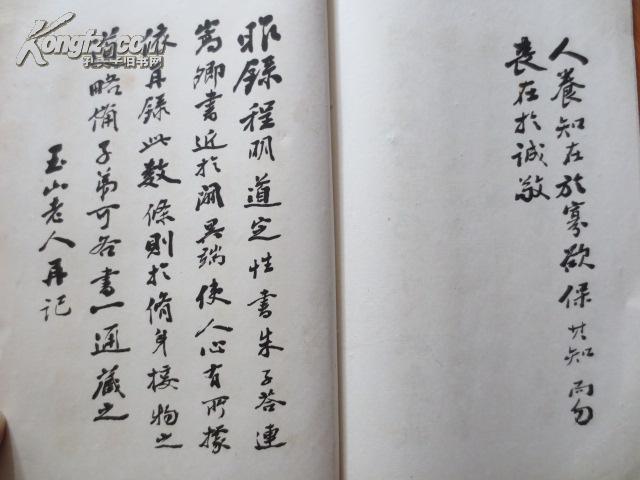 人養知在於寡欲保其知而勿
喪在於誠敬
昨錄程明道定性書朱子答連
嵩卿書近於闢異端使人心有所據
依再錄此數條則於脩身接物之
道略備子弟可各書一通藏之
玉山老人再記
Kongfz.com
孔夫子旧书网